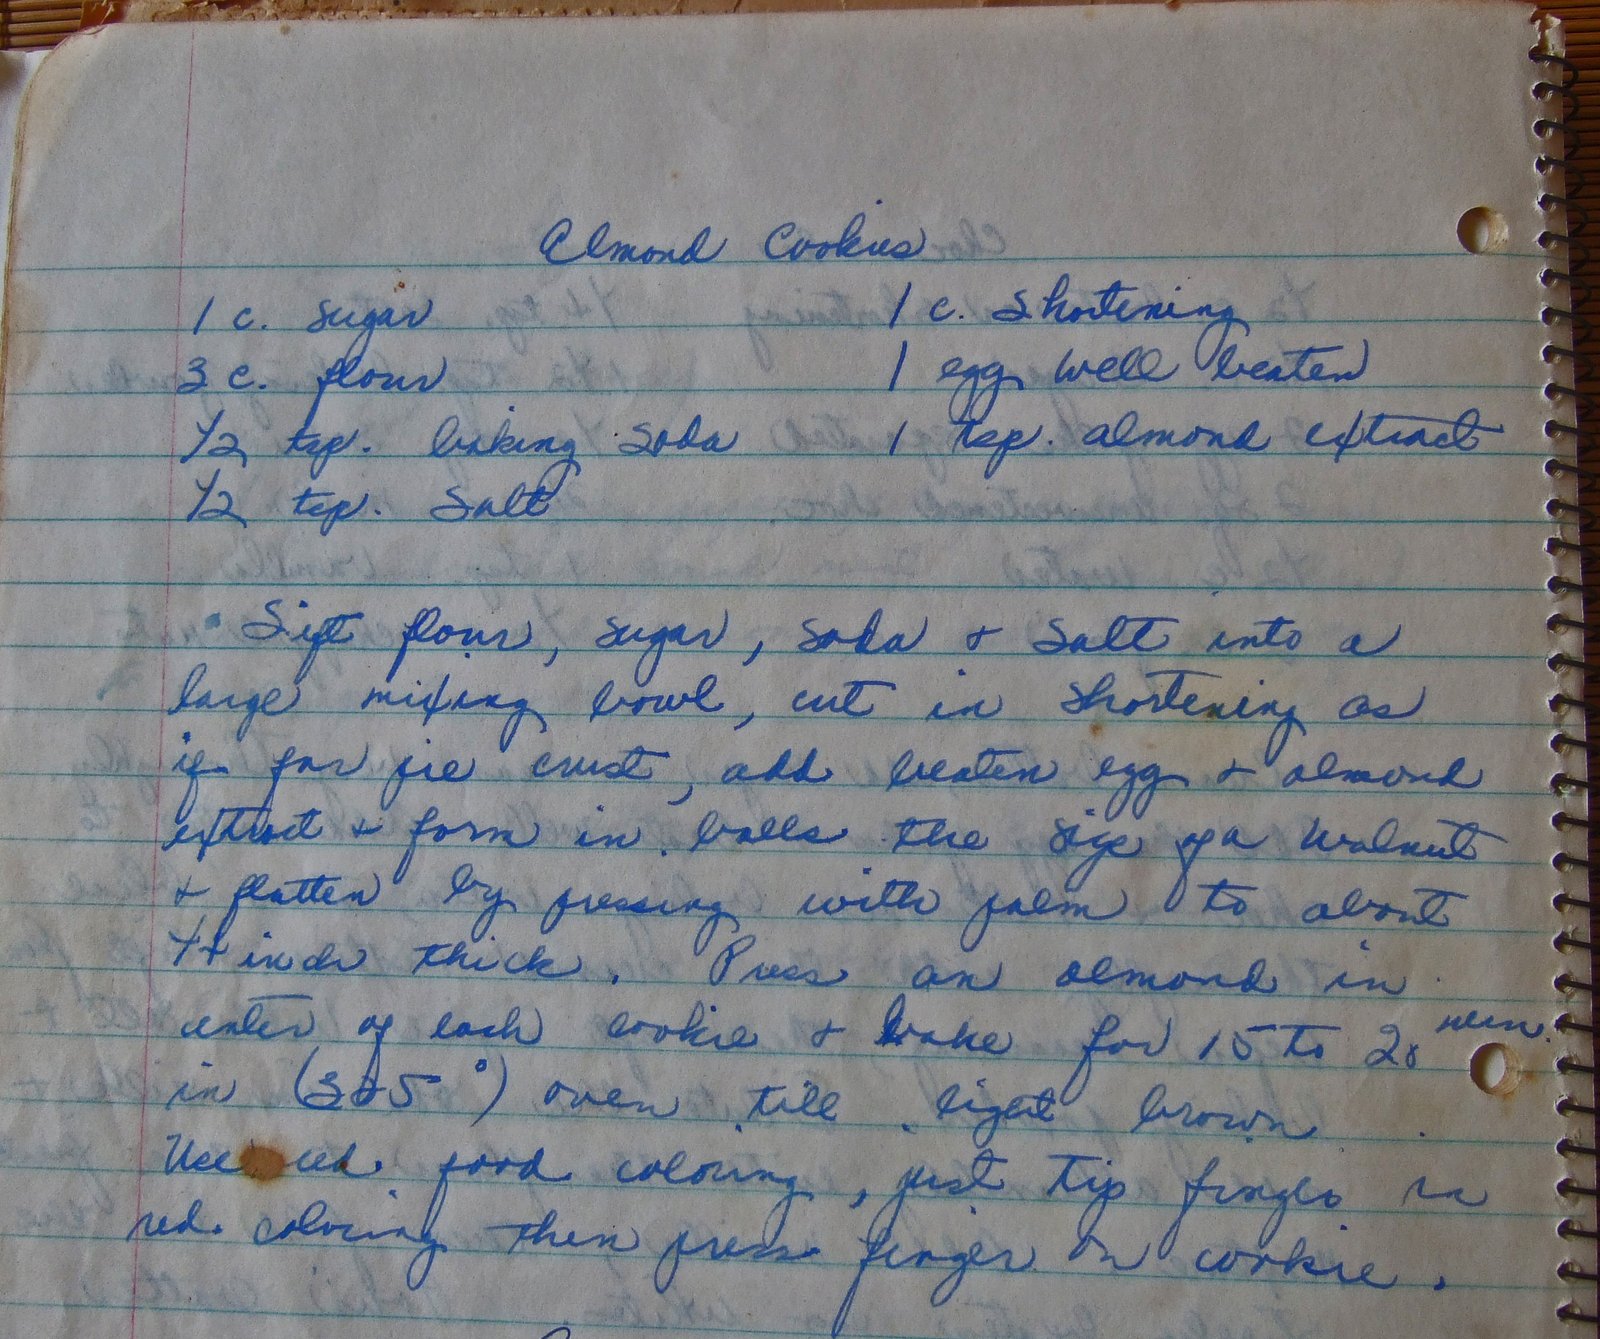 Almond Cookies
1 c. sugar 1 c. shortening
3 c. flour 1 egg well beaten
1/2 tsp. baking soda 1 tsp. almond extract
1/2 tsp. salt
Sift flour, sugar, soda + salt into a
large mixing bowl, cut in shortening as
if for pie crust, add beaten egg + almond
extract + form in balls the size of a walnut
+ flatten by pressing with palm to about
1/4 inch thick. Press an almond in
center of each cookie + bake for 15 to 20 min.
in (325°) oven till light brown
Use red food coloring, just tip finger in
red coloring then press finger on cookie.